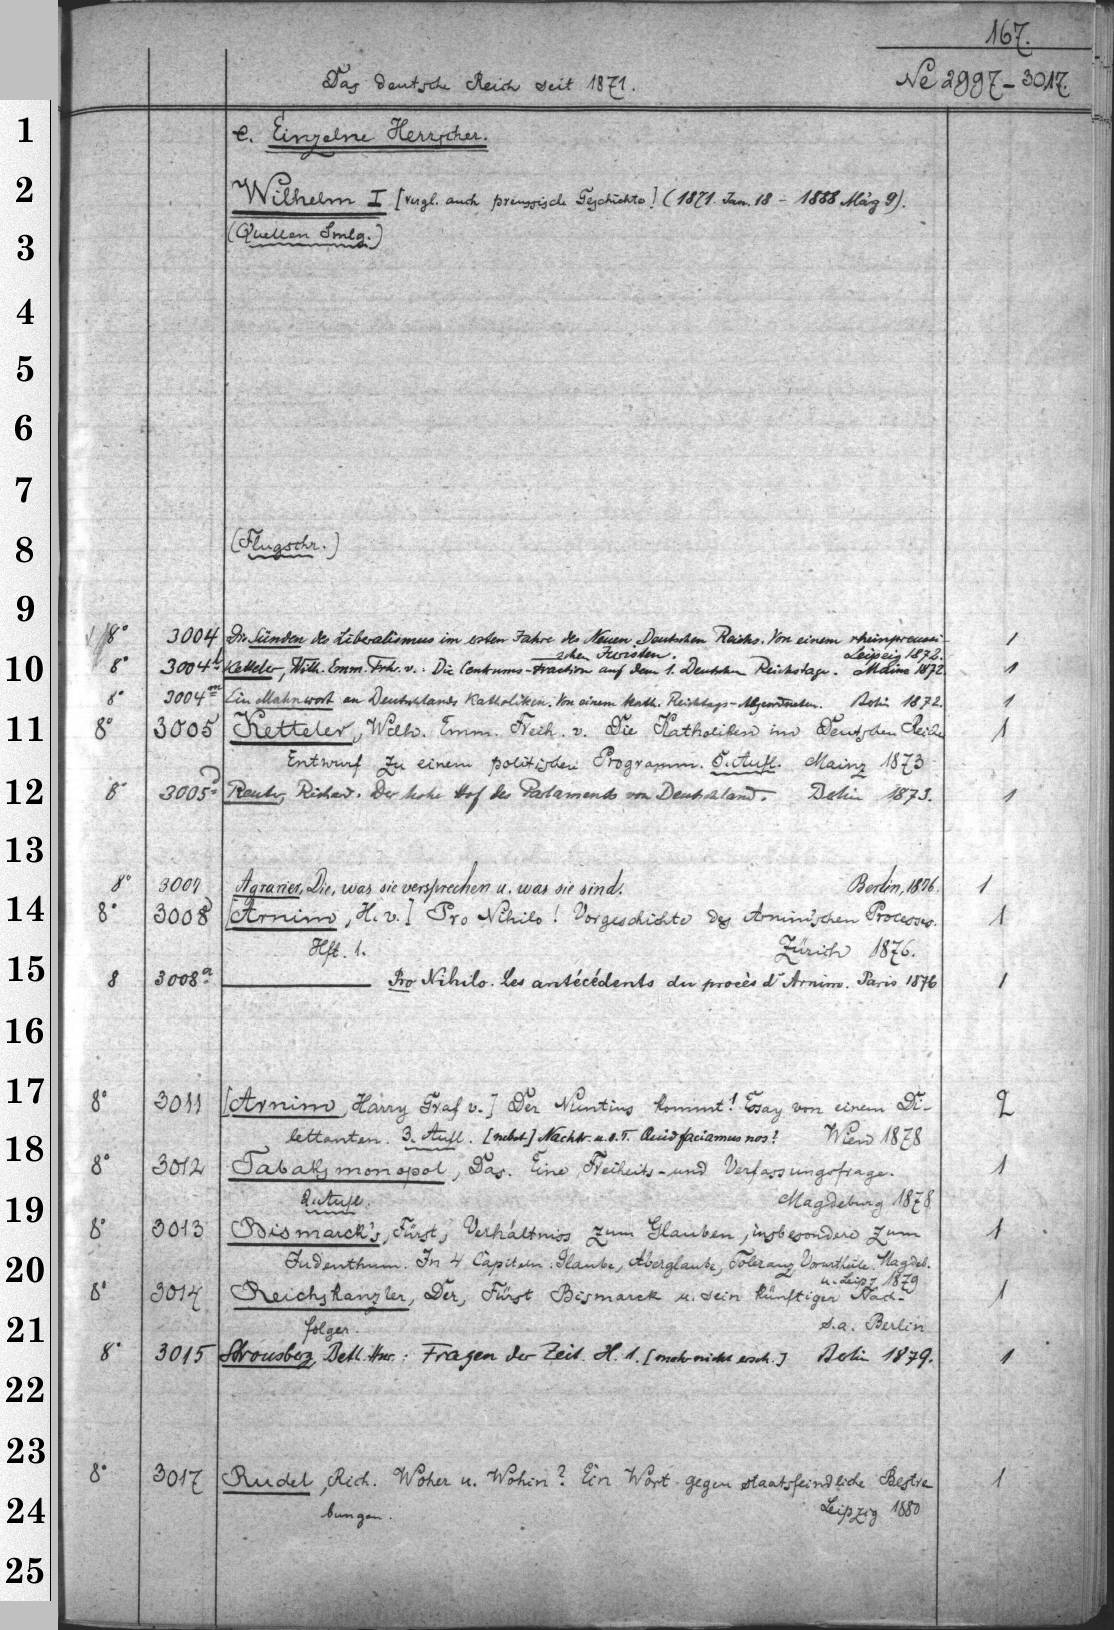 167.
Das deutsche Reich seit 1871.
Ne 2997-3017.
e. Einzelne Herrscher.
Wilhelm I [vergl. auch preussische Geschichte] (1871. Jan. 18 - 1888 März 9).
(Quellen Smlg.)
(Flugschr.)
8° 3004 Die Sünden des Liberalismus im ersten Jahre des Neuen Deutschen Reichs. Von einem rheinpreussi- 1
schen Juristen. Leipzig 1872.
8° 3004 Ketteler, Wilh. Emm. Frh. v.: Die Centrums-Fraction auf dem 1. Deutschen Reichstage. Mainz 1872 1
8° 3004m Ein Mahnwort an Deutschlands Katholiken. Von einem kath. Reichstags-Abgeordneten. Berlin 1872. 1
8° 3005 Ketteler, Wilh. Emm. Freih. v. Die Katholiken im Deutschen Reiche 1
Entwurf zu einem politischen Programm. 5. Aufl. Mainz 1873
8° 3005a Reuter, Richard. Der hohe Hof des Parlaments von Deutschland. Berlin 1873. 1
8° 3007 Agrarier, Die, was sie versprechen u. was sie sind. Berlin, 1876. 1
8° 3008 [Arnim, H. v.] Pro Nihilo! Vorgeschichte des Arnim'schen Processes. 1
Hft. 1. Zürich 1876.
8 3008a Pro Nihilo. Les antécédents du procès d'Arnim. Paris 1876 1
8° 3011 [Arnim, Harry Graf v.] Der Nuntius kommt! Essay von einem Di- 2
lettanten. 3. Aufl. [nebst] Nachtr. u. d. T. Quid faciamus nos? Wien 1878
8° 3012 Tabaksmonopol, Das. Eine Freiheits- und Verfassungsfrage. 1
2. Aufl. Magdeburg 1878
8° 3013 Bismarck's, Fürst, Verhältniss zum Glauben, insbesondere zum 1
Judenthum. In 4 Capiteln: Glaube, Aberglaube, Toleranz, Vorurtheile. Magdeb.
u. Leipz. 1879
8° 3014 Reichskanzler, Der, Fürst Bismarck u. sein künftiger Nach- 1
folger. s.a. Berlin
8° 3015 Strousberg, Betl. Hnr.: Fragen der Zeit. H. 1. [mehr nicht ersch.] Berlin 1879. 1
8° 3017 Rudel, Rich. Woher u. Wohin? Ein Wort gegen staatsfeindliche Bestre 1
bungen. Leipzig 1880
1
2
3
4
5
6
7
8
9
10
11
12
13
14
15
16
17
18
19
20
21
22
23
24
25